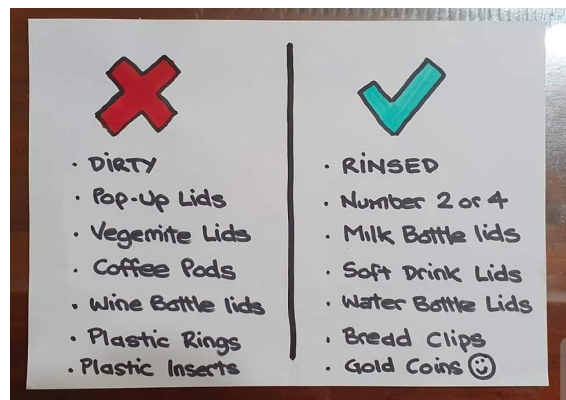 • DiRTY
• Pop-Up Lids
• Vegemite Lids
• Coffee Pods
• Wine Bottle lids
• Plastic Rings
• Plastic Inserts
• RiNSED
• Number 2 or 4
• Milk Bottle lids
• Soft Drink Lids
• Water Bottle Lids
• Bread Clips
• Gold Coins ☺